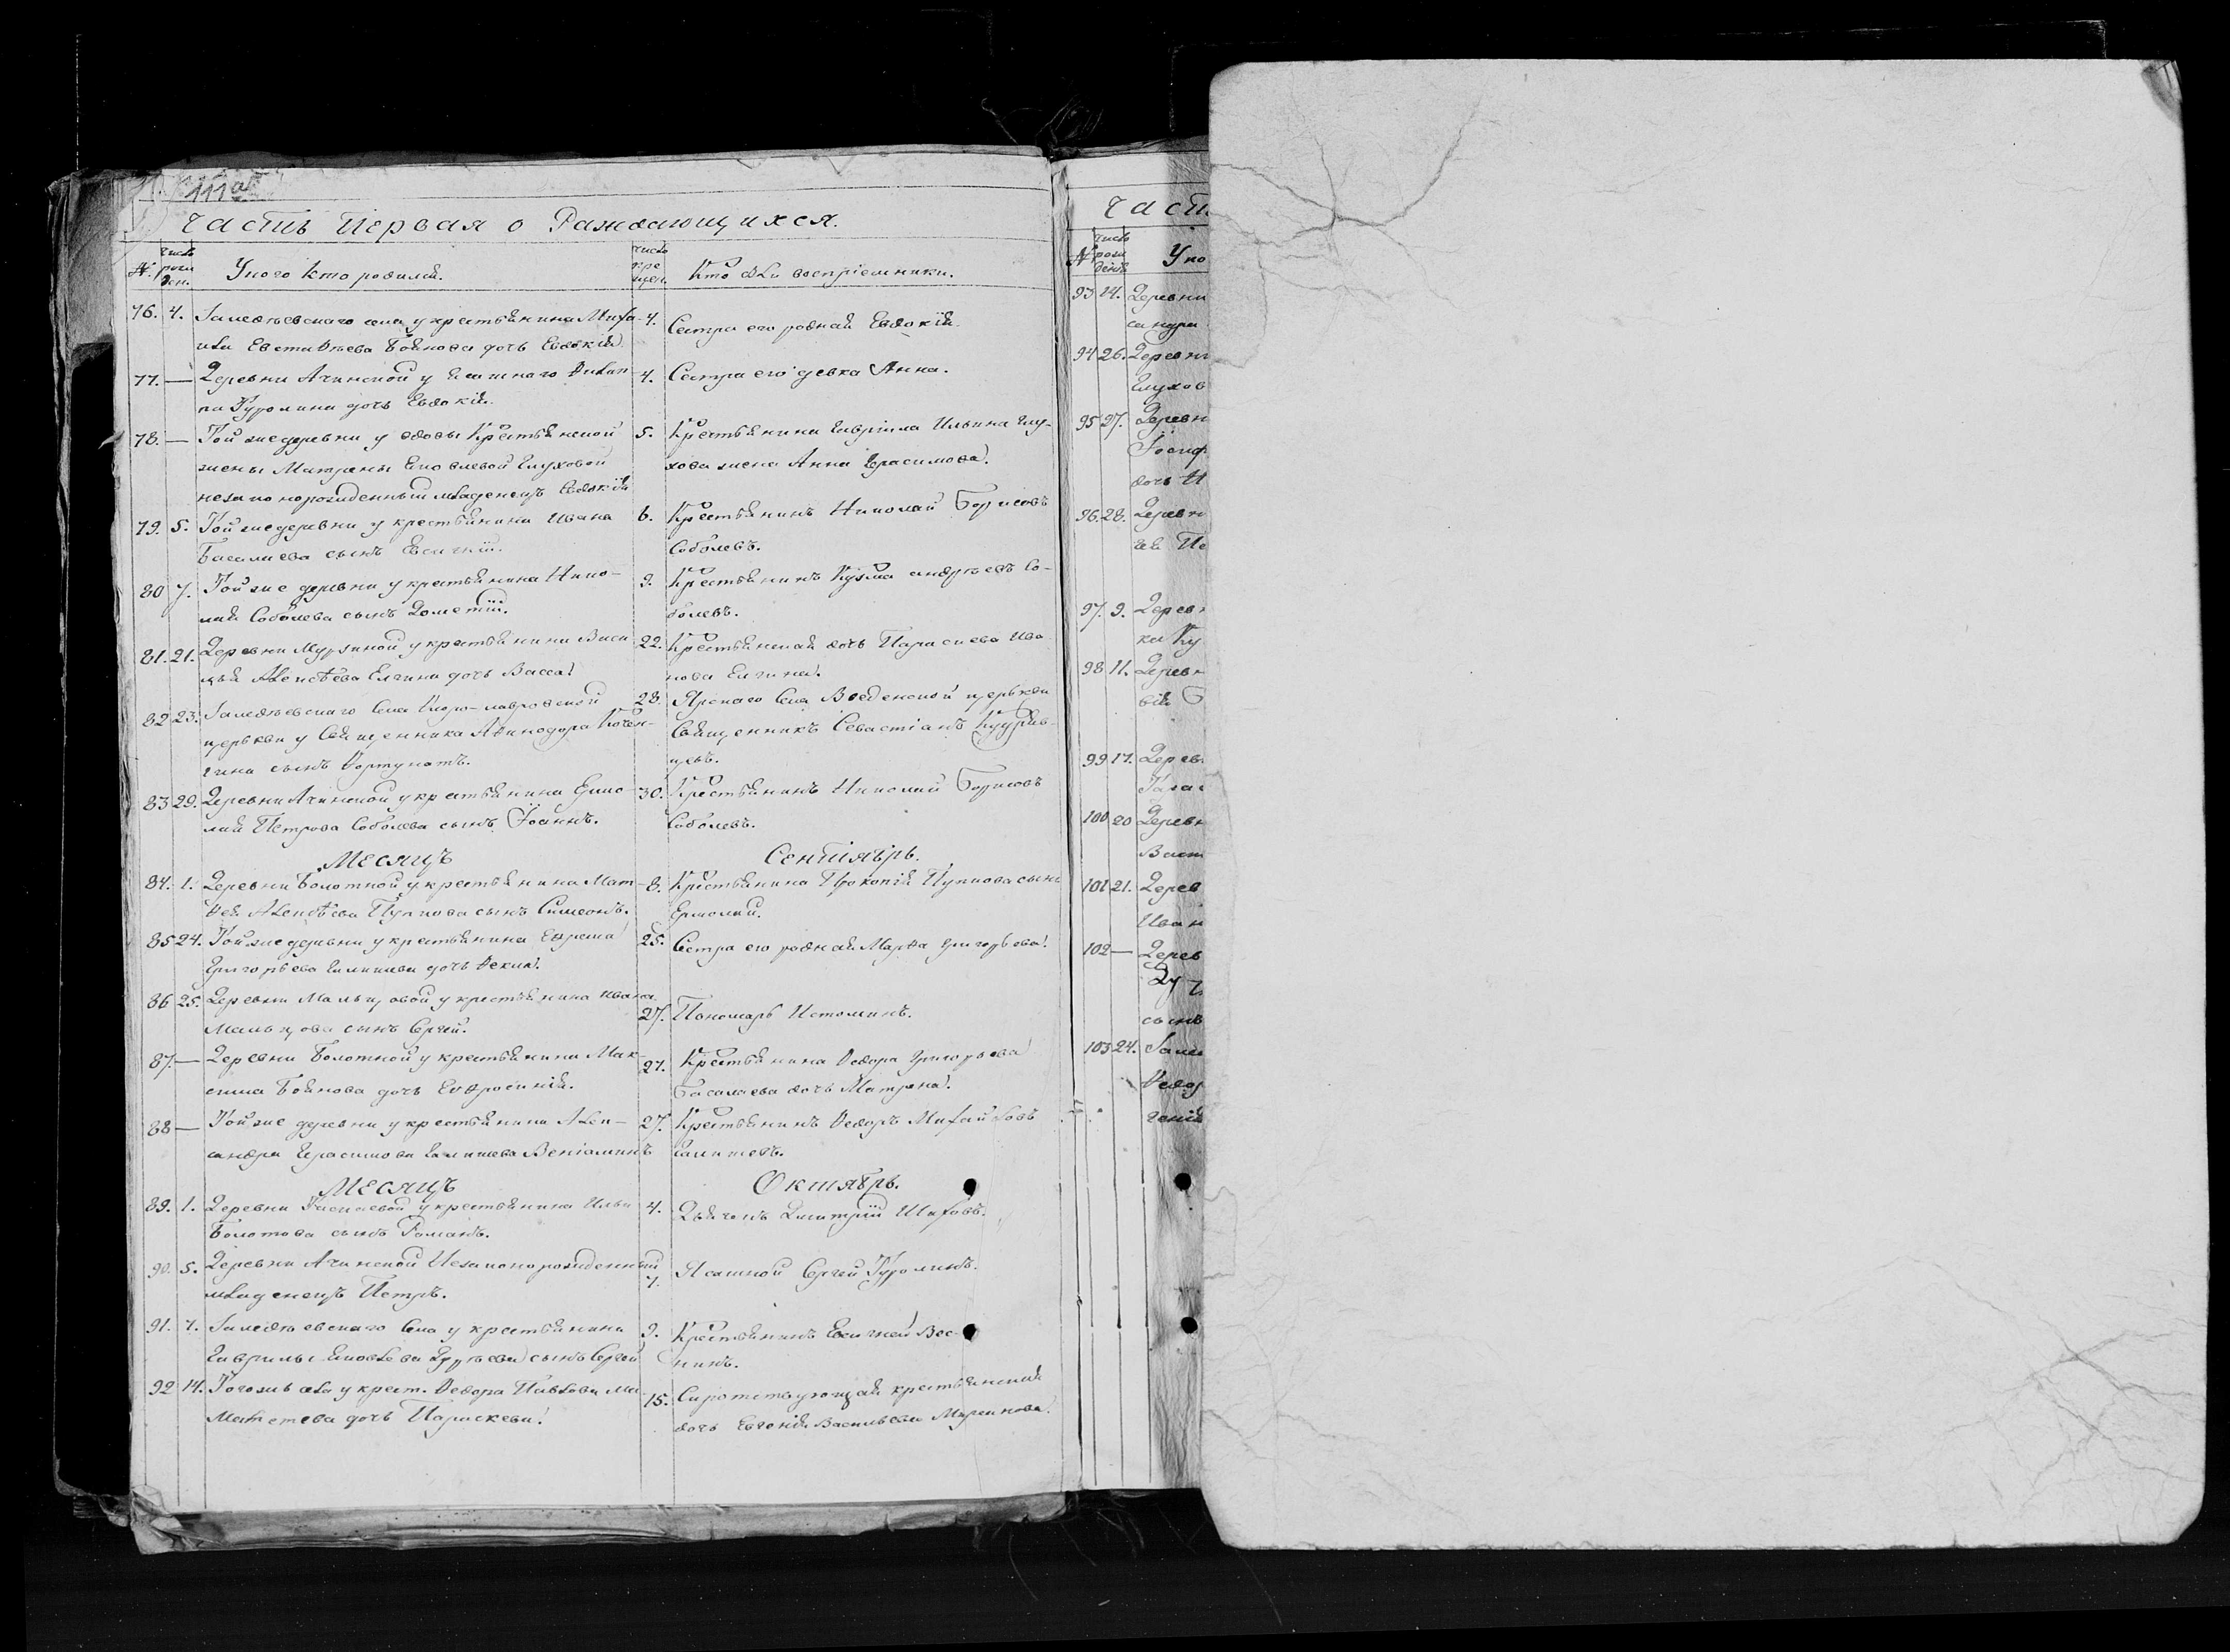 111 об
Часть Первая о Раждающихся.
№. число рожден. У кого кто родился. число крещен. Кто были восприемники.
76. 4. Замедѣевскаго села у крестьянина Миха-
ила Евстиѳѣева Боянова дочь Евдокія.
4. Сестра его родная Евдокія.
77. — Деревни Ачинской у Ясашнаго
Туролина дочь Евдокія.
4. Сестра его девка Анна.
78. — Той же деревни у вдовы Крестьянской
жены Матрены Глуховой
незаконорожденный младенецъ Евдокія
5. Крестьянина Гавріила Ильина Глу-
хова жена Анна Герасимова.
79. 5. Той же деревни у крестьянина Ивана
Басалаева сынъ Евсигній.
6. Крестьянинъ Николай Борисовъ
Соболевъ.
80 7. Той же деревни у крестьянина Нико-
лая Соболева сынъ Дометій.
9. Крестьянинъ Кузма андрѣевъ Со-
болевъ.
81. 21. Деревни Мурзиной у крестьянина Васи
лья Алексѣева Елгина дочь Васса.
22. Крестьянская дочь Параскева Ива
нова Елгина.
82 23. Замедѣевскаго Села Флоро-лавровской
церькви у Священника Аѳиногора Кочен-
гина сынъ Фортунатъ.
28. Ярскаго Села Введенской церькви
Священникъ Севастіанъ Кудряв-
цевъ.
83 29. Деревни Ачинской у крестьянина Ермо-
лая Петрова Соболева сынъ Іоаннъ.
30. Крестьянинъ Николай Борисовъ
Соболевъ.
Месяцъ Сентябрь.
84. 1. Деревни Болотной у крестьянина Мат-
ѳея Алексѣева Пупкова сынъ Симеонъ.
8. Крестьянина Прокопія Пупкова сынъ
Ермолай.
85 24. Той же деревни у крестьянина Ефрема
Григорьева Галишева дочь Фекла.
25. Сестра его родная Марѳа Григорьева.
86 25. Деревни Мальцовой у крестьянина Ивана
Мальцова сынъ Сергей.
27. Пономарь Истоминъ.
87. — Деревни Болотной у крестьянина Мак-
сима Боянова дочь Евфросинія.
27. Крестьянина Ѳедора Григорьева
Басалаева дочь Матрена.
88 — Той же деревни у крестьянина Алек-
сандра Герасимова Галишева Веніаминъ
27. Крестьянинъ Ѳедоръ Михайловъ
Галишевъ.
Месяцъ Октябрь.
89. 1. Деревни у крестьянина Ильи
Болотова сынъ Романъ.
4. Дьячекъ Димитрій Шаховъ.
90. 5. Деревни Ачинской Незаконорожденный
младенецъ Петръ.
7. Ясашной Сергей Туролинъ.
91. 7. Замедѣевскаго Села у крестьянина
Гаврилы сынъ Сергей
9. Крестьянинъ Евсигней Вес-
нинъ.
92 14. Тогожъ села у крест. Ѳедора Павлова Ма
Маметева дочь Параскева.
15. Сиротствующая крестьянская
дочь Евгенія Васильева
Часть
№ число рожденія У ко
93 14. Деревни
сандра
94 26. Деревни
Глухов
95 27. Деревн
Іосиф
дочь
96. 28. Деревн
97. 9. Дерев
ка Ку
98 11. Деревн
вія
99 17. Дерев
100 20 Деревн
Васи
101 21. Дерев
Иван
102 — Дерев
сынъ
103 24. Заме
Ѳедор
генія